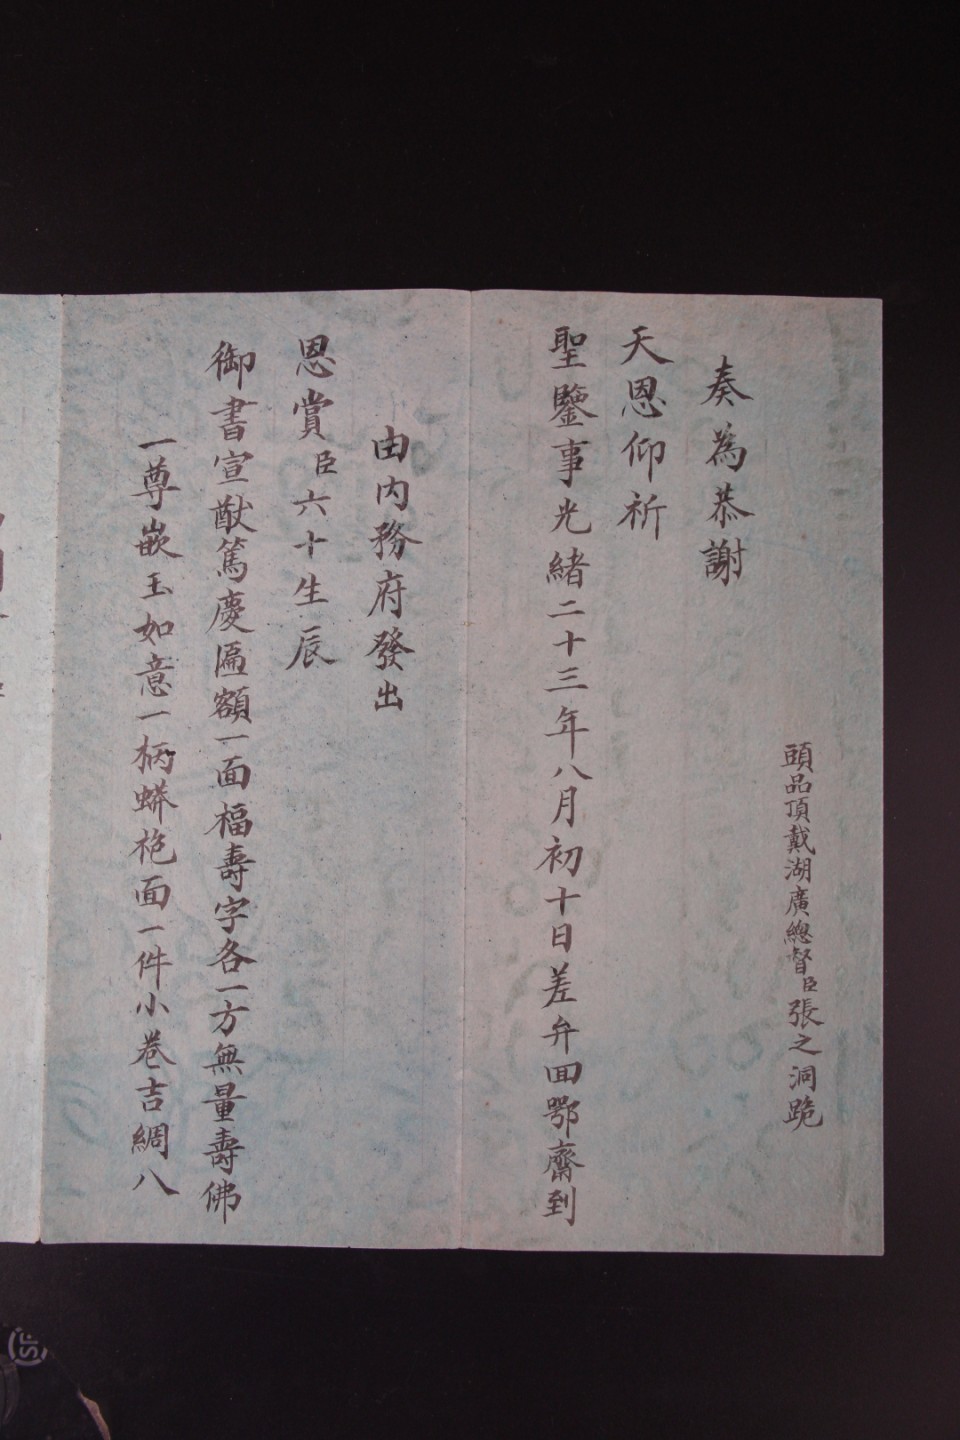 頭品頂戴湖廣總督臣張之洞跪
奏為恭謝
天恩仰祈
聖鑒事光緒二十三年八月初十日差弁回鄂齎到
由內務府發出
恩賞臣六十生辰
御書宣猷篤慶匾額一面福壽字各一方無量壽佛
一尊嵌玉如意一柄蟒袍面一件小卷吉綢八